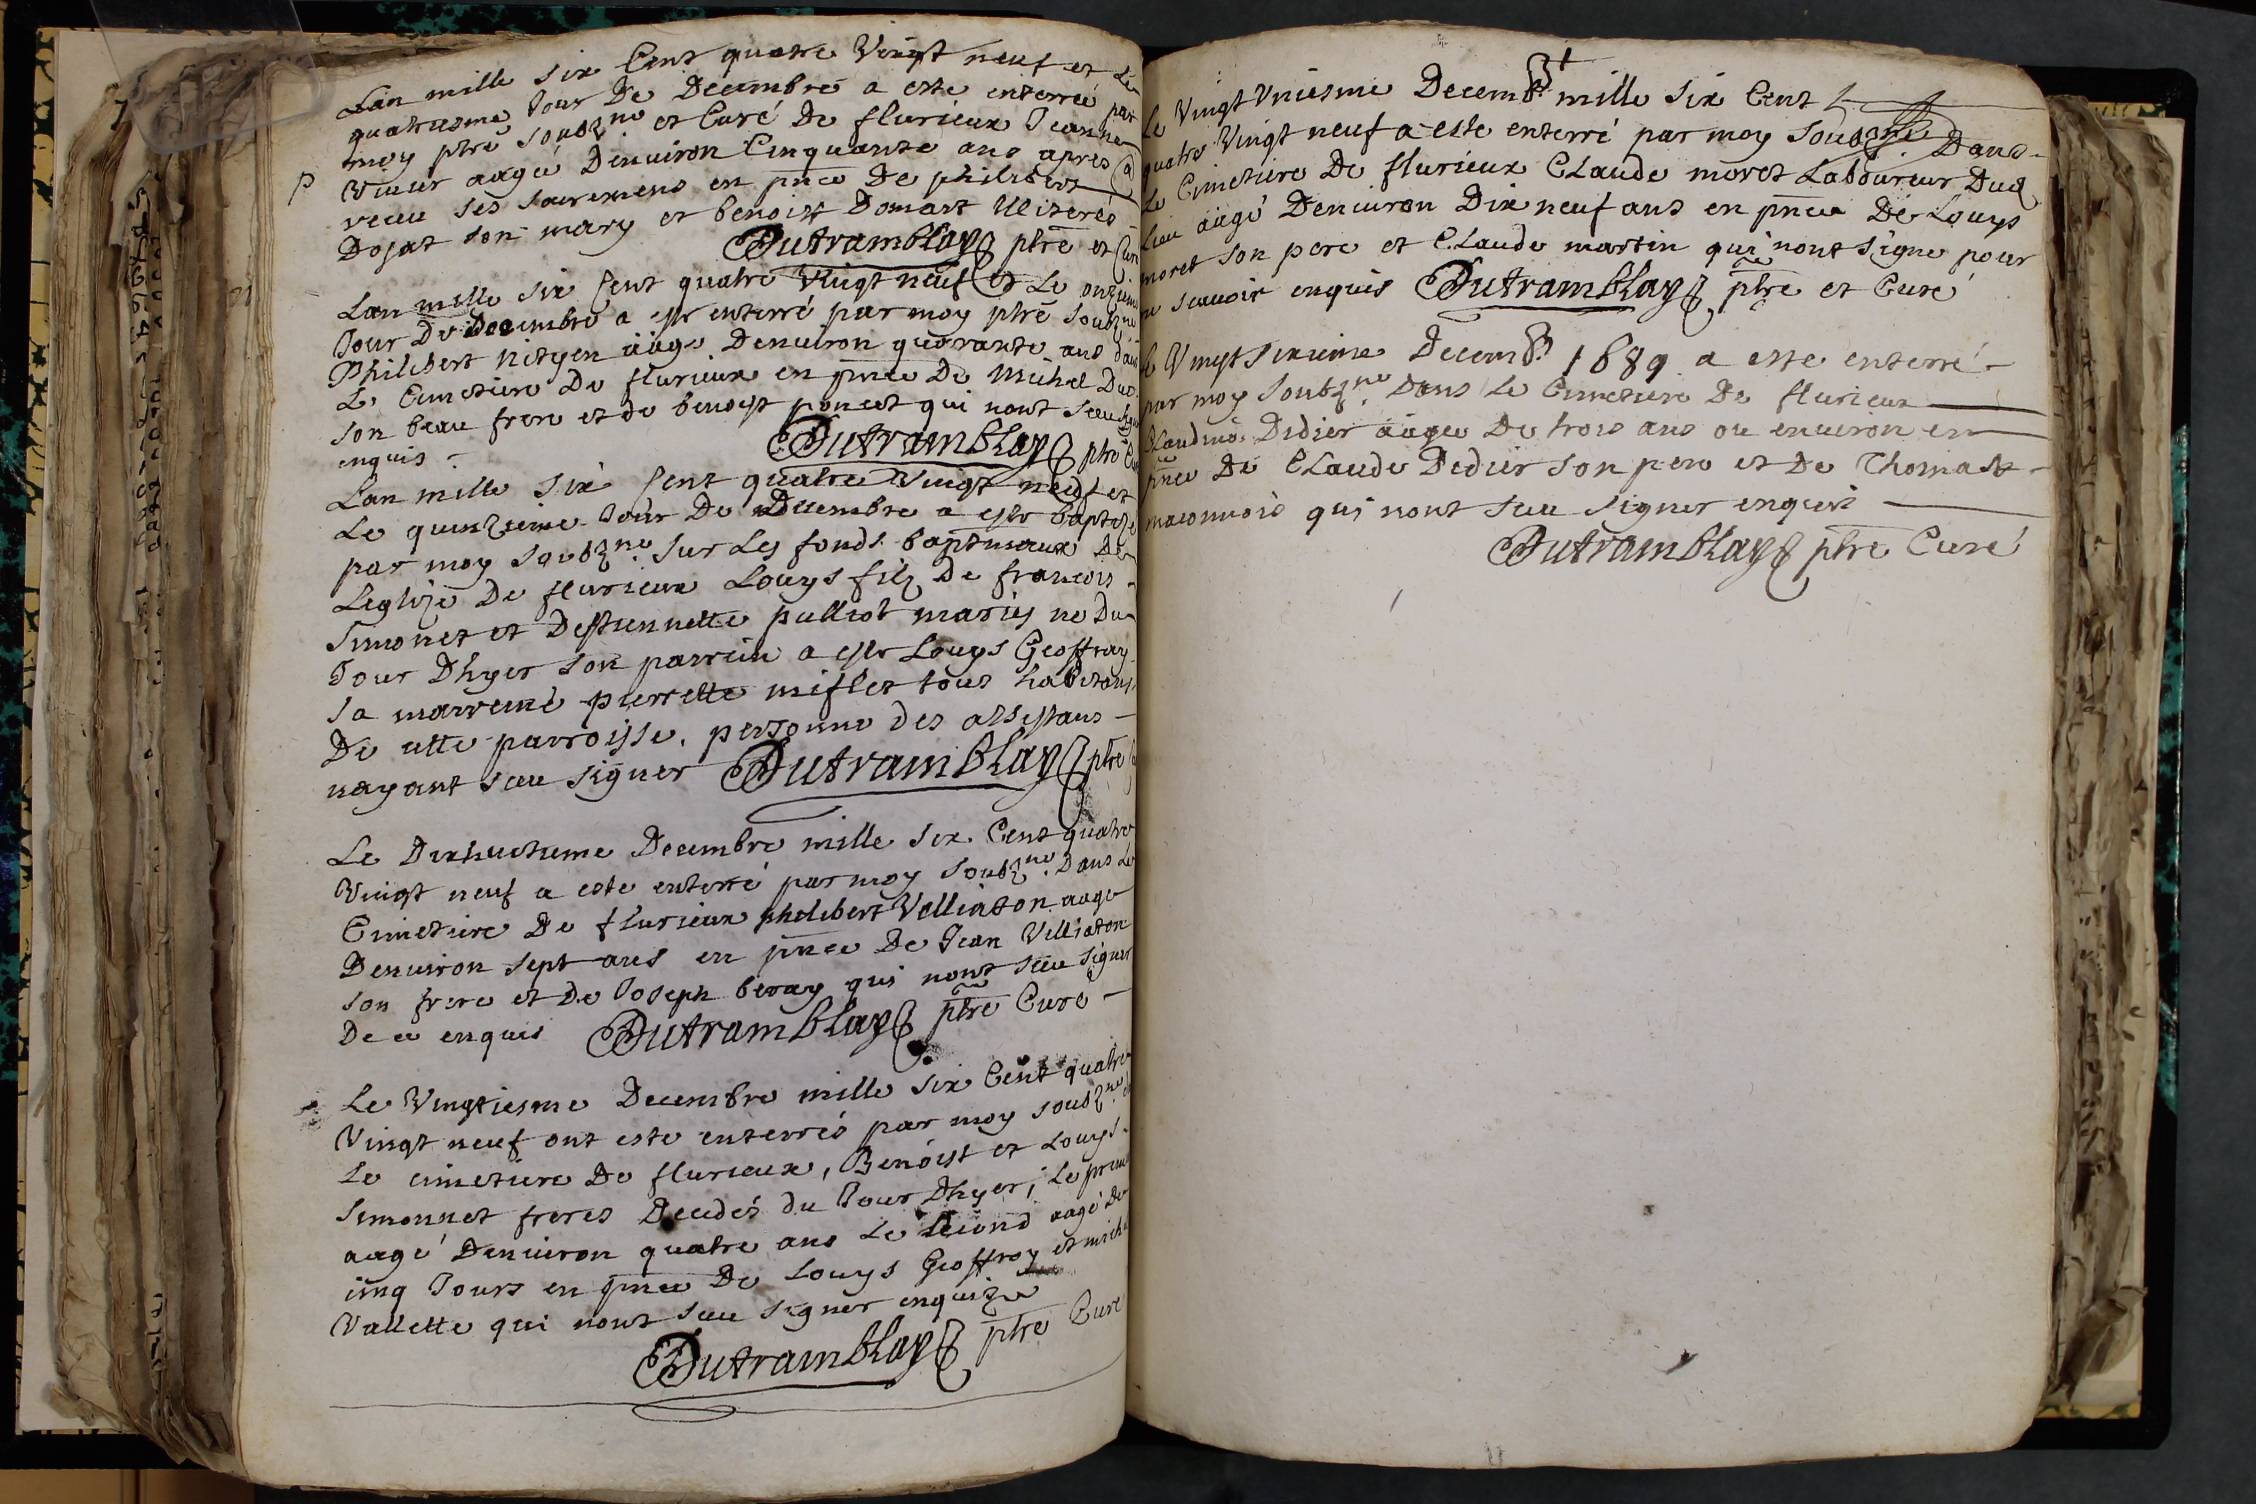 Lan mille six Cent quatre Vingt neuf et Le
quatriesme Jour De Decembre a este enterreé par
moy ptre soubzne et Curé De flurieux Jeanne
Viueur aageé Denuiron Cinquante ans apres
receu ses sacremens en pnce De philibert
Dojat son mary et benoist Domart
Dutramblay ptre et Curé
Lan mille six Cent quatre Vingt neuf et Le onzieme
Jour De Decembre a este enterré par moy ptre soubzne
Philibert nityen aäge Denuiron quarante ans dans
Le Cimetiere De flurieux en pnce De Michel Duc
son beau frere et de benoyst poncet qui nont sceu signer
enquis
Dutramblay ptre Curé
Lan mille six Cent quatre Vingt neuf et
Le quinzieme Jour De Decembre a este baptizé
par moy soubzne sur Les fonds baptismaux De
Leglize De flurieux Louys filz De francois
Simonet et Destiennette pulliot mariez ne Du
Jour Dhyer son parrein a este Louys Geoffray
sa marreine pierrette miflet tous habitans
De cette parroisse. personne des assistans
nayant sceu signer Dutramblay ptre
Le Dixhuictieme Decembre mille six Cent quatre
Vingt neuf a este enterré par moy soubzne Dans Le
Cimetiere De flurieux philibert Velliaton aage
Denuiron sept ans en pnce De Jean Velliaton
son frere et De Joseph beray qui nont sceu signer
De ce enquis Dutramblay ptre Curé
Le Vingtiesme Decembre mille six Cent quatre
Vingt neuf ont este enterrés par moy soubzne
Le cimetiere De flurieux, Benoist et Louys
Simonnet freres Decedés du Jour Dhyer, Le premier
aagé Denuiron quatre ans Le second aagé De
cinq Jours en pnce De Louys Geoffroy et michel
Vallette qui nont sceu signer enquize
Dutramblay ptre Curé
Le Vingt Vniesme Decembr mille six Cent
quatre Vingt neuf a este enterré par moy soubzne Dans
Le Cimetiere De flurieux Claude moret Laboureur Dud
Lieu aägé Denuiron Dix neuf ans en pnce De Louys
moret son pere et Claude martin qui nont signe pour
ne scauoir enquis Dutramblay ptre et Curé
Le Vingt sixieme Decembr 1689 a este enterré
par moy soubzne Dans Le Cimetiere De flurieux
Claudine Didier aägee De trois ans ou enuiron en
pnce De Claude Dedier son pere et De Thomas
maconnois qui nont sceu signer enquis
Dutramblay ptre Curé